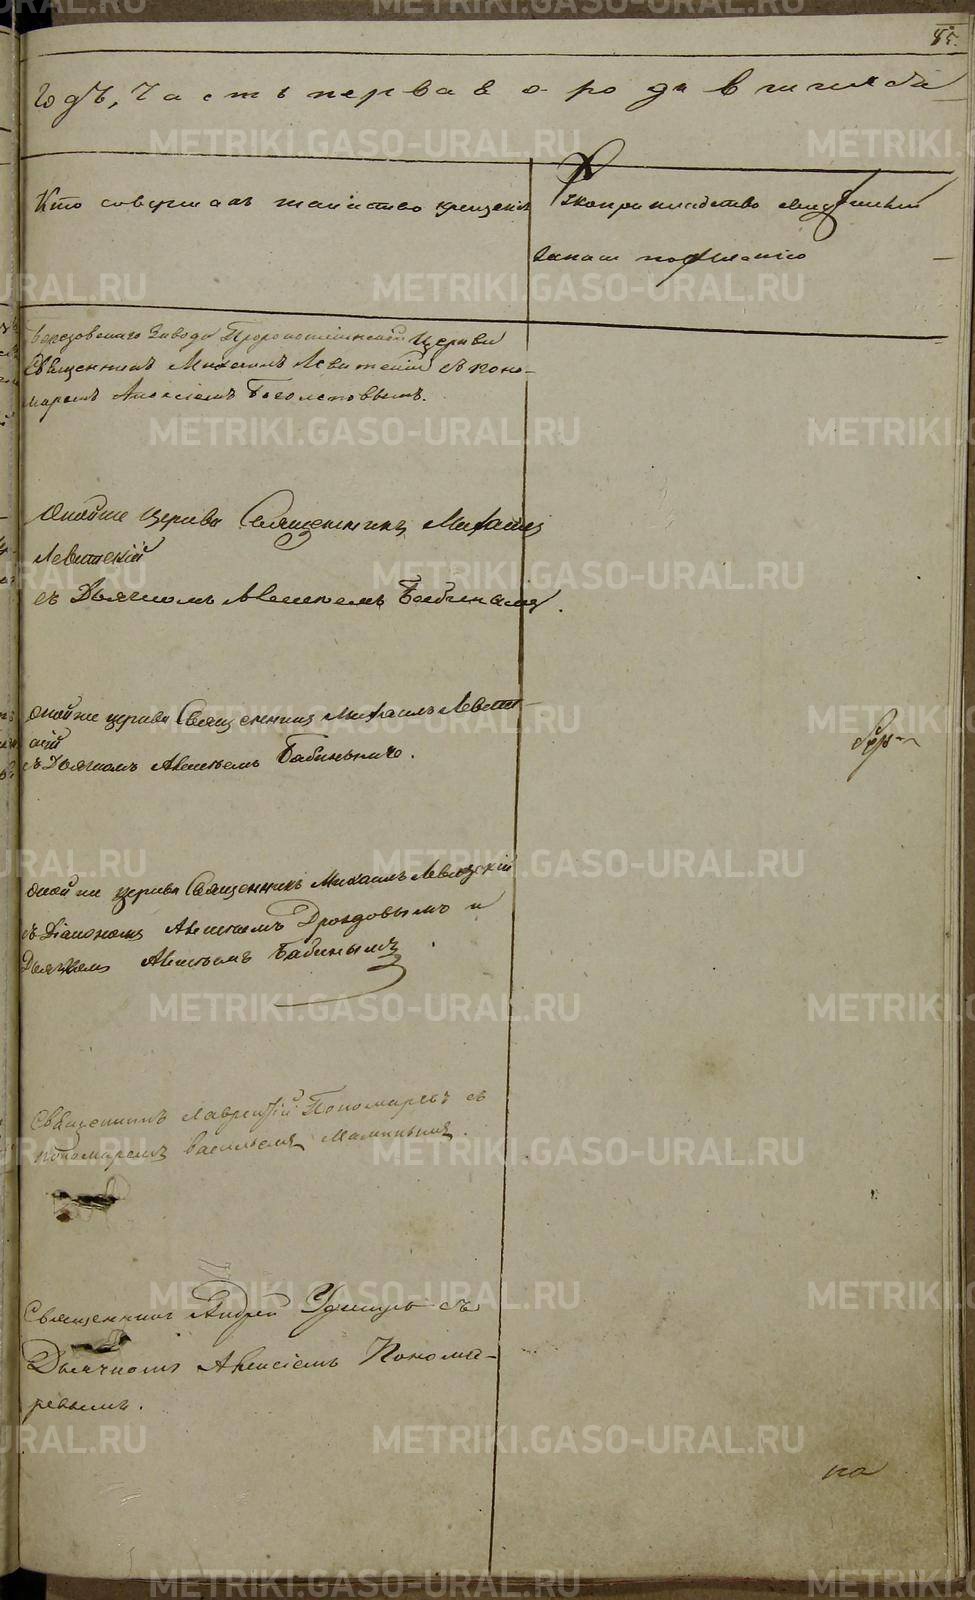 85.
годъ, Часть первая о родившихся
Кто совершалъ таинство крещенія
Рукоприкладство свидѣтелей
записи по желанію
Березовскаго Завода Пророкоильинской Церкви
Священникъ Михаилъ Левитскій съ поно-
маремъ Алексіемъ Богословымъ.
Оной же Церкви Священникъ Михаилъ
Левитскій
съ Дьячкомъ Алексѣемъ Бабинымъ.
Оной же церкви Священникъ Михаилъ Левит-
скій
съ Дьячкомъ Алексѣемъ Бабинымъ.
Оной же церкви Священникъ Михаилъ Левитскій
съ Діакономъ Алексѣемъ Дроздовымъ и
Дьячкомъ Алексѣемъ Бабинымъ.
Священникъ Лаврентій Пономаревъ съ
пономаремъ Васильемъ Маминымъ.
Священникъ Андрей Удинцовъ съ
Дьячкомъ Алексіемъ Понома-
ревымъ.
на
METRIKI.GASO-URAL.RU